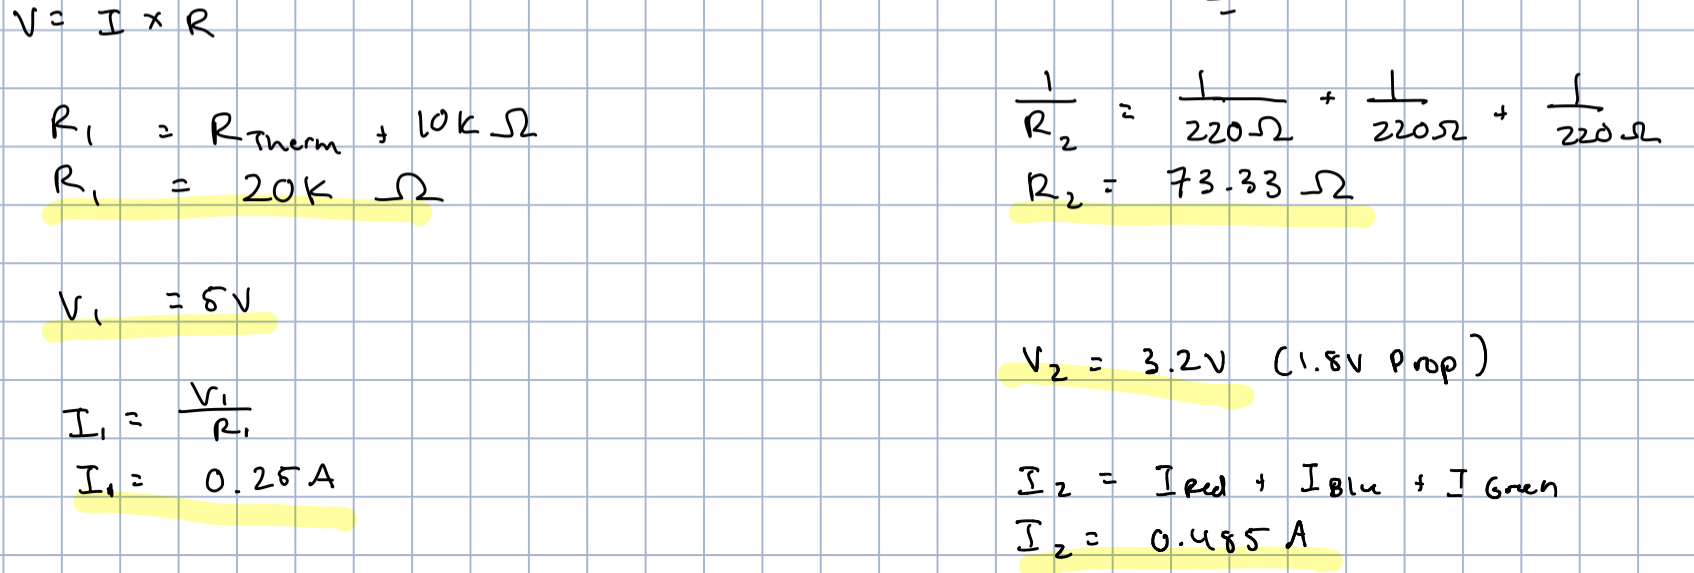 V = I × R
R₁ = R_Therm + 10K Ω
R₁ = 20K Ω
V₁ = 5V
I₁ = V₁ / R₁
I₁ = 0.25 A
1/R₂ = 1/220Ω + 1/220Ω + 1/220Ω
R₂ = 73.33 Ω
V₂ = 3.2V (1.8V Drop)
I₂ = I_Red + I_Blue + I_Green
I₂ = 0.485 A